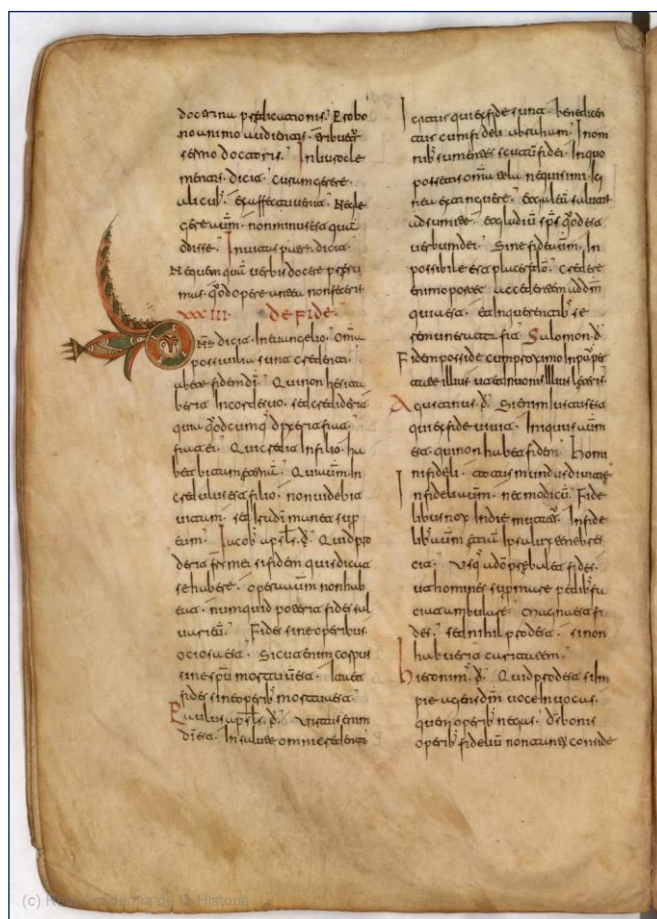 doctrina predicationis. Et bo
no animo audientis. tribuetr
sermo doctoris. In libro cle
mentis. dicit. Curam gerere
Neqle
gere aūm. non minus est quā
In uitas patr̄. dicit.
Nequemquā uerbis docere presu
mas. qđ opere ante non feceris
XXIII. DE FIDE.
Dn̄s dicit. In euangelio. Omīa
possiuilia sunt credenti.
abete fidem dī. Qui non hesita
berit In corde suo. sed crediderit
quia qđcumq dixerit fiat.
fiat ei. Qui credit In filio. ha
bet bitam eternā. Qui aūm In
credulus est filio. non uidebit
uitam. sed Ira dī manet sup
eum. Iacob apsłs. d̄. Quid pro
derit frs mei si fidem quis dicat
se habere. opera aūm non hab
eat. numquid poterit fides sal
uare eū. Fides sine operibus
otiosa est. Sicut enim corpus
sine spū mortuū est. Ita et
fides sine operib mortua est.
Paulus apsłs. d̄. Virtus enim
dī est. In salute omni credenti
Igitur qui ex fide sunt. benedicen
tur cum fideli abraham. In om
nib sumentes scutū fidei. In quo
possetis omīa tela nequissimi. Ig
nea extinguere. et galeā salutis
adsumite. et gladiū sp̄s qđ est
uerbum dei. Sine fide aūm. In
possibile est placere dō. Credere
enim oportet accedentem ad dm̄
quia est. et Inquirentib se
remunerator fit. Salomon d̄.
Fidem posside cum proximo In pauper
tate illius ut et In uonis illius leteris.
Agustinus d̄. Si enim Iustus est
qui ex fide uiuit. Iniquus aūm
est. qui non habet fidem. Homi
ni fideli. totus mundus diuitie
Infideli aūm. nec modicū. Fide
libus nox In die mutatr. Infide
lib aūm etiā Ipsa lux tenebres
cit. Usq adō preualet fides.
ut homines supmare pedib si
cut ambulare. Magna est fi
des. sed nihil prodest. si non
habuerit caritatem.
Hieronim. d̄. Quid prodest si Im
pie agens dm̄ uoce Inuocas.
quem operib negas. de bonis
operib fideliū non tantum conside